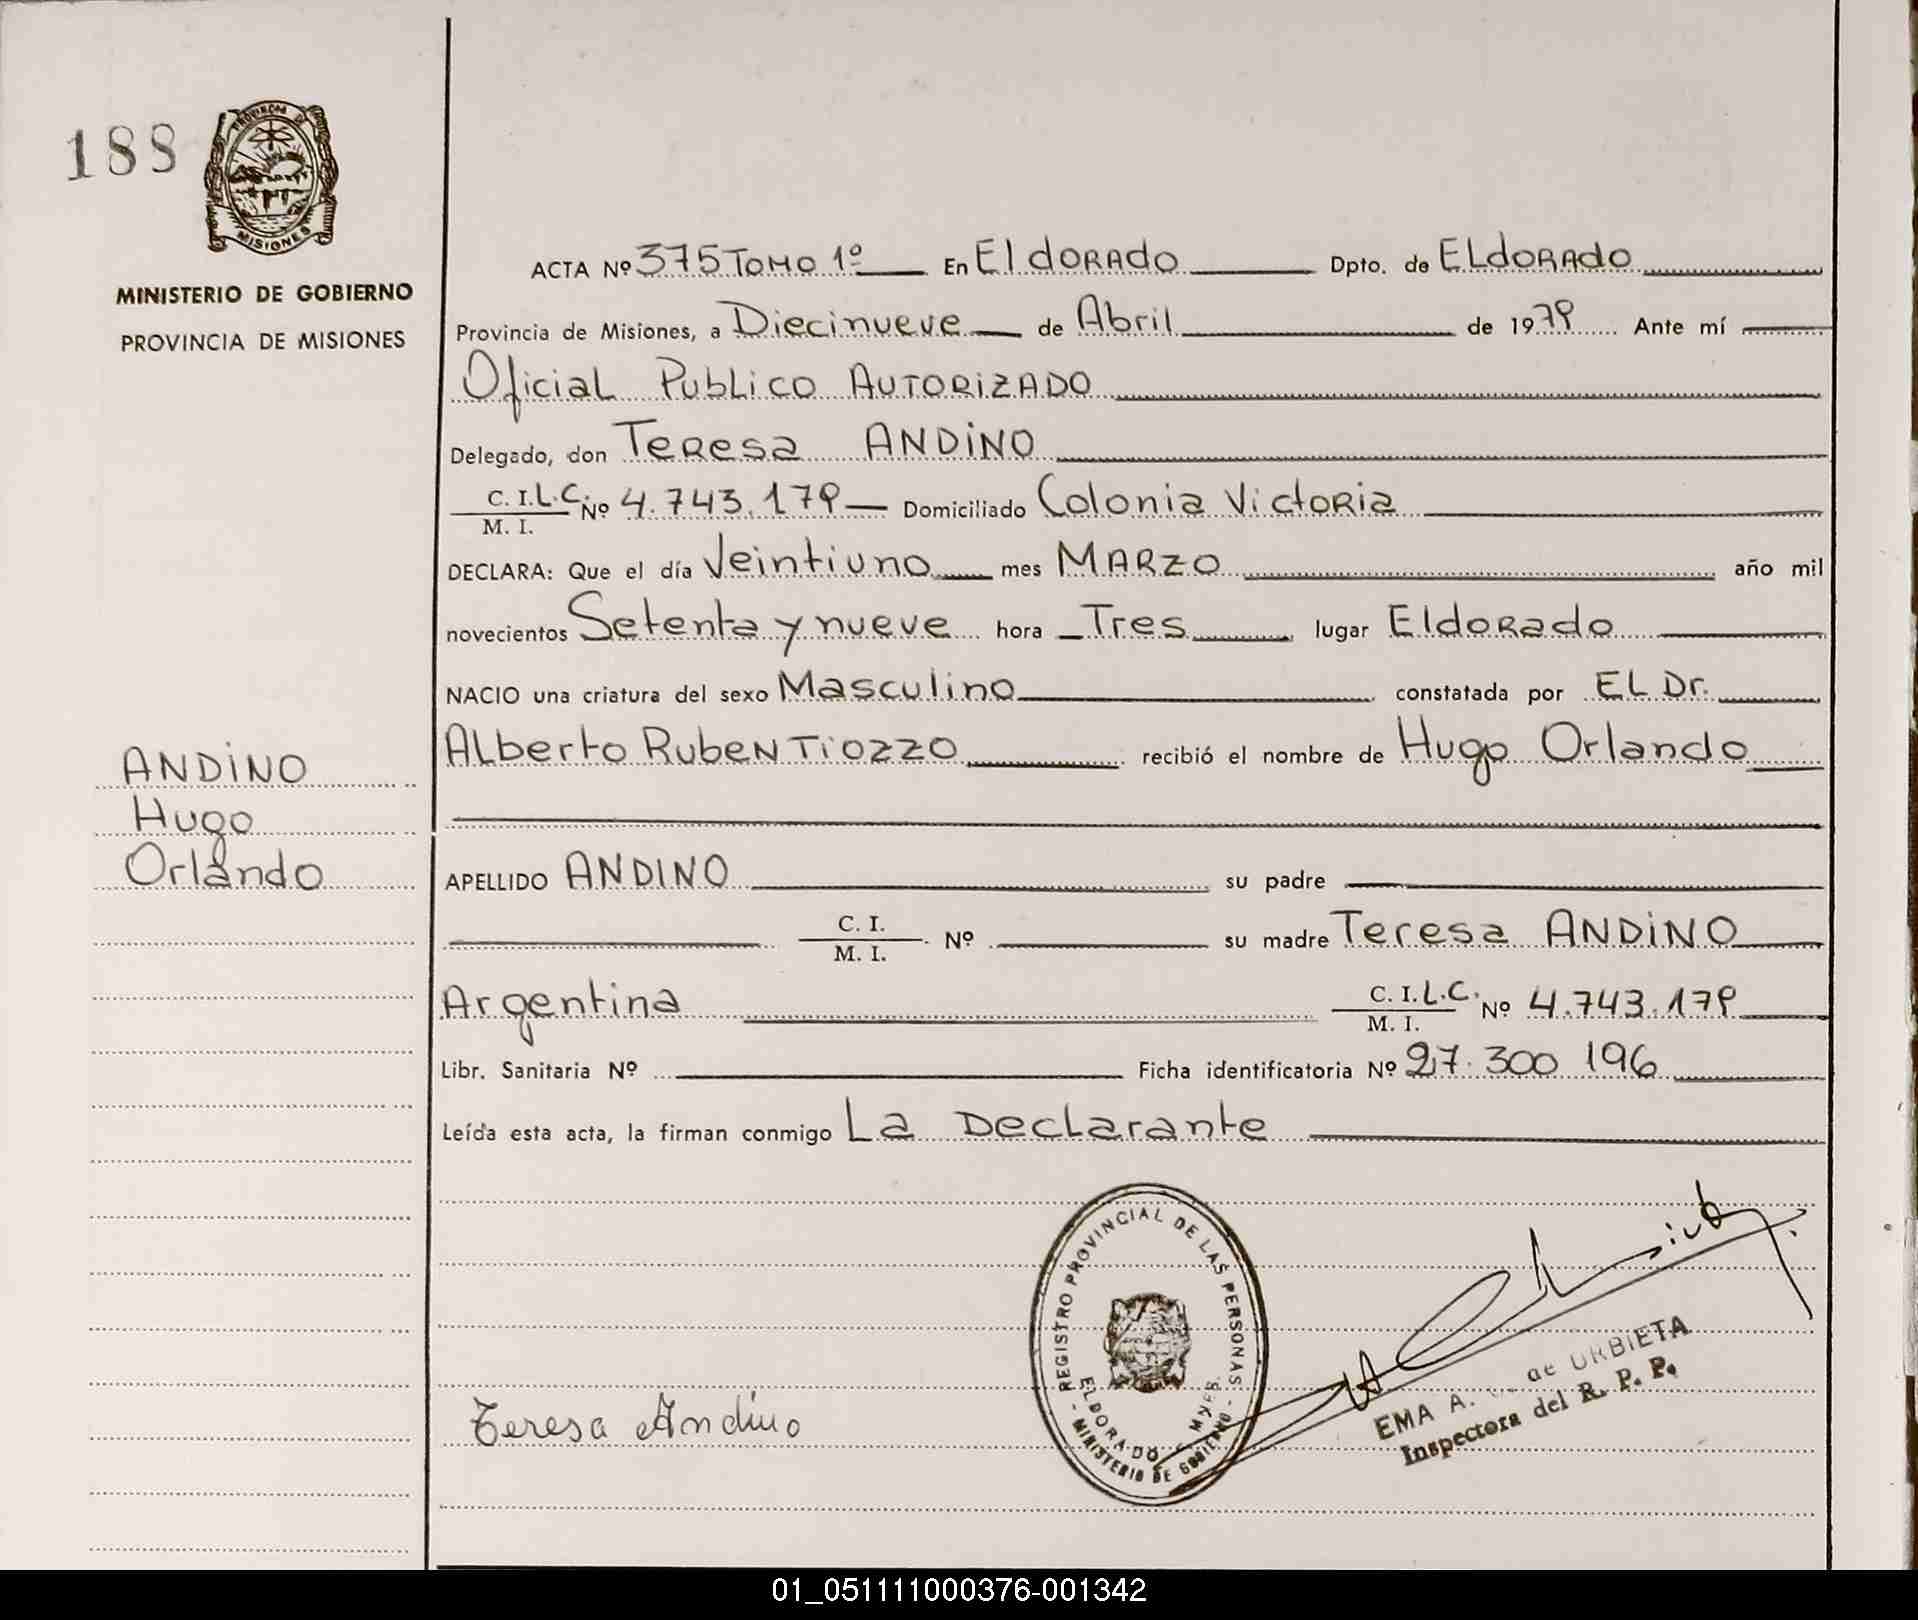 188
PROVINCIA DE
MISIONES
MINISTERIO DE GOBIERNO
PROVINCIA DE MISIONES
ANDINO
Hugo
Orlando
ACTA Nº 375 Tomo 1º En Eldorado Dpto. de Eldorado
Provincia de Misiones, a Diecinueve de Abril de 1979 Ante mí
Oficial Publico Autorizado
Delegado, don Teresa ANDINO
C. I. L.C. Nº 4.743.179 Domiciliado Colonia Victoria
M. I.
DECLARA: Que el día Veintiuno mes MARZO año mil
novecientos Setenta y nueve hora Tres lugar Eldorado
NACIO una criatura del sexo Masculino constatada por EL Dr.
Alberto Ruben Tiozzo recibió el nombre de Hugo Orlando
APELLIDO ANDINO su padre
C. I.
M. I. Nº su madre Teresa ANDINO
Argentina C. I. L.C. Nº 4.743.179
M. I.
Libr. Sanitaria Nº Ficha identificatoria Nº 27.300 196
Leída esta acta, la firman conmigo La Declarante
REGISTRO PROVINCIAL DE LAS PERSONAS
ELDORADO MNES.
- MINISTERIO DE GOBIERNO -
Teresa Andino
EMA A. de URBIETA
Inspectora del R. P. P.
01_051111000376-001342